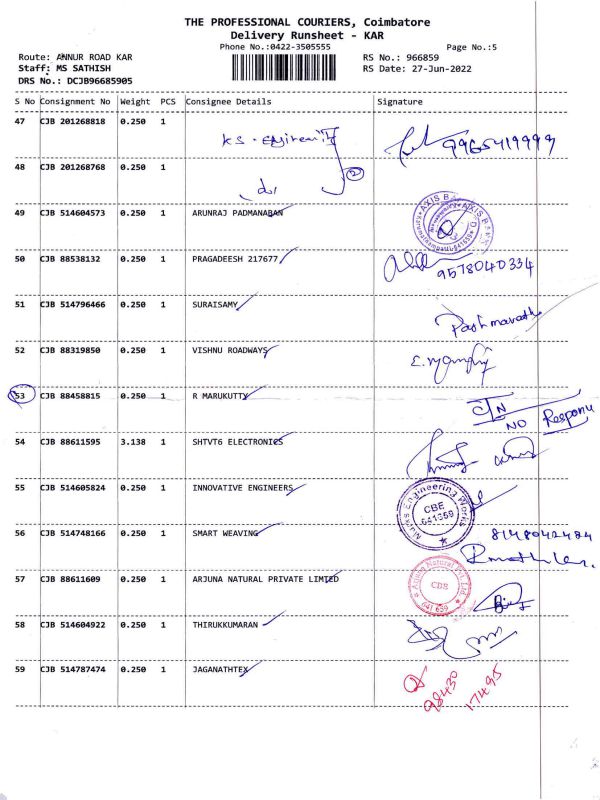 THE PROFESSIONAL COURIERS, Coimbatore
Delivery Runsheet - KAR
Phone No.:0422-3505555
Page No.:5
Route: ANNUR ROAD KAR
RS No.: 966859
Staff: MS SATHISH
RS Date: 27-Jun-2022
DRS No.: DCJB96685905
S No Consignment No Weight PCS Consignee Details Signature
47 CJB 201268818 0.250 1 9965419999
48 CJB 201268768 0.250 1 2
49 CJB 514604573 0.250 1 ARUNRAJ PADMANABAN AXIS
50 CJB 88538132 0.250 1 PRAGADEESH 217677 9578040334
51 CJB 514796466 0.250 1 SURAISAMY
52 CJB 88319850 0.250 1 VISHNU ROADWAYS
53 CJB 88458815 0.250 1 R MARUKUTTY NO
54 CJB 88611595 3.138 1 SHTVT6 ELECTRONICS
55 CJB 514605824 0.250 1 INNOVATIVE ENGINEERS Engineering Works CBE 641659
56 CJB 514748166 0.250 1 SMART WEAVING 8148042484
57 CJB 88611609 0.250 1 ARJUNA NATURAL PRIVATE LIMTED Arjuna Natural Pvt Ltd. CBE 641 659
58 CJB 514604922 0.250 1 THIRUKKUMARAN
59 CJB 514787474 0.250 1 JAGANATHTEX 98430 17495